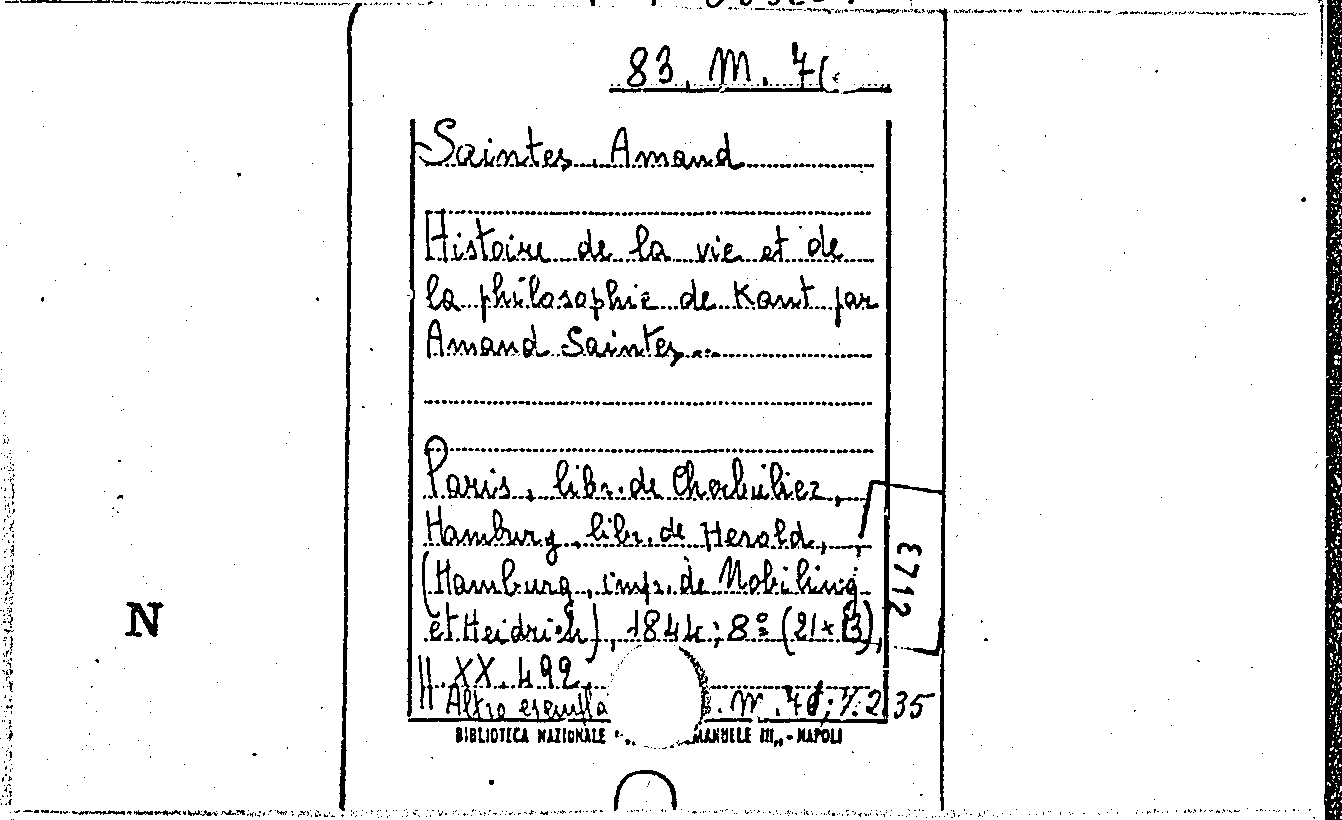 83. M. 7
Saintes, Amand
Histoire de la vie et de
la philosophie de Kant par
Amand Saintes...
Paris, libr. de Cherbuliez,
Hamburg, libr. de Herold,
(Hamburg, imp. de Nobiling
et Heidrich), 1844; 8º (21×13),
E712
pp. XX. 492.
Altro esempla . M. ; 35
BIBLIOTECA NAZIONALE MANUELE III„ - NAPOLI
N